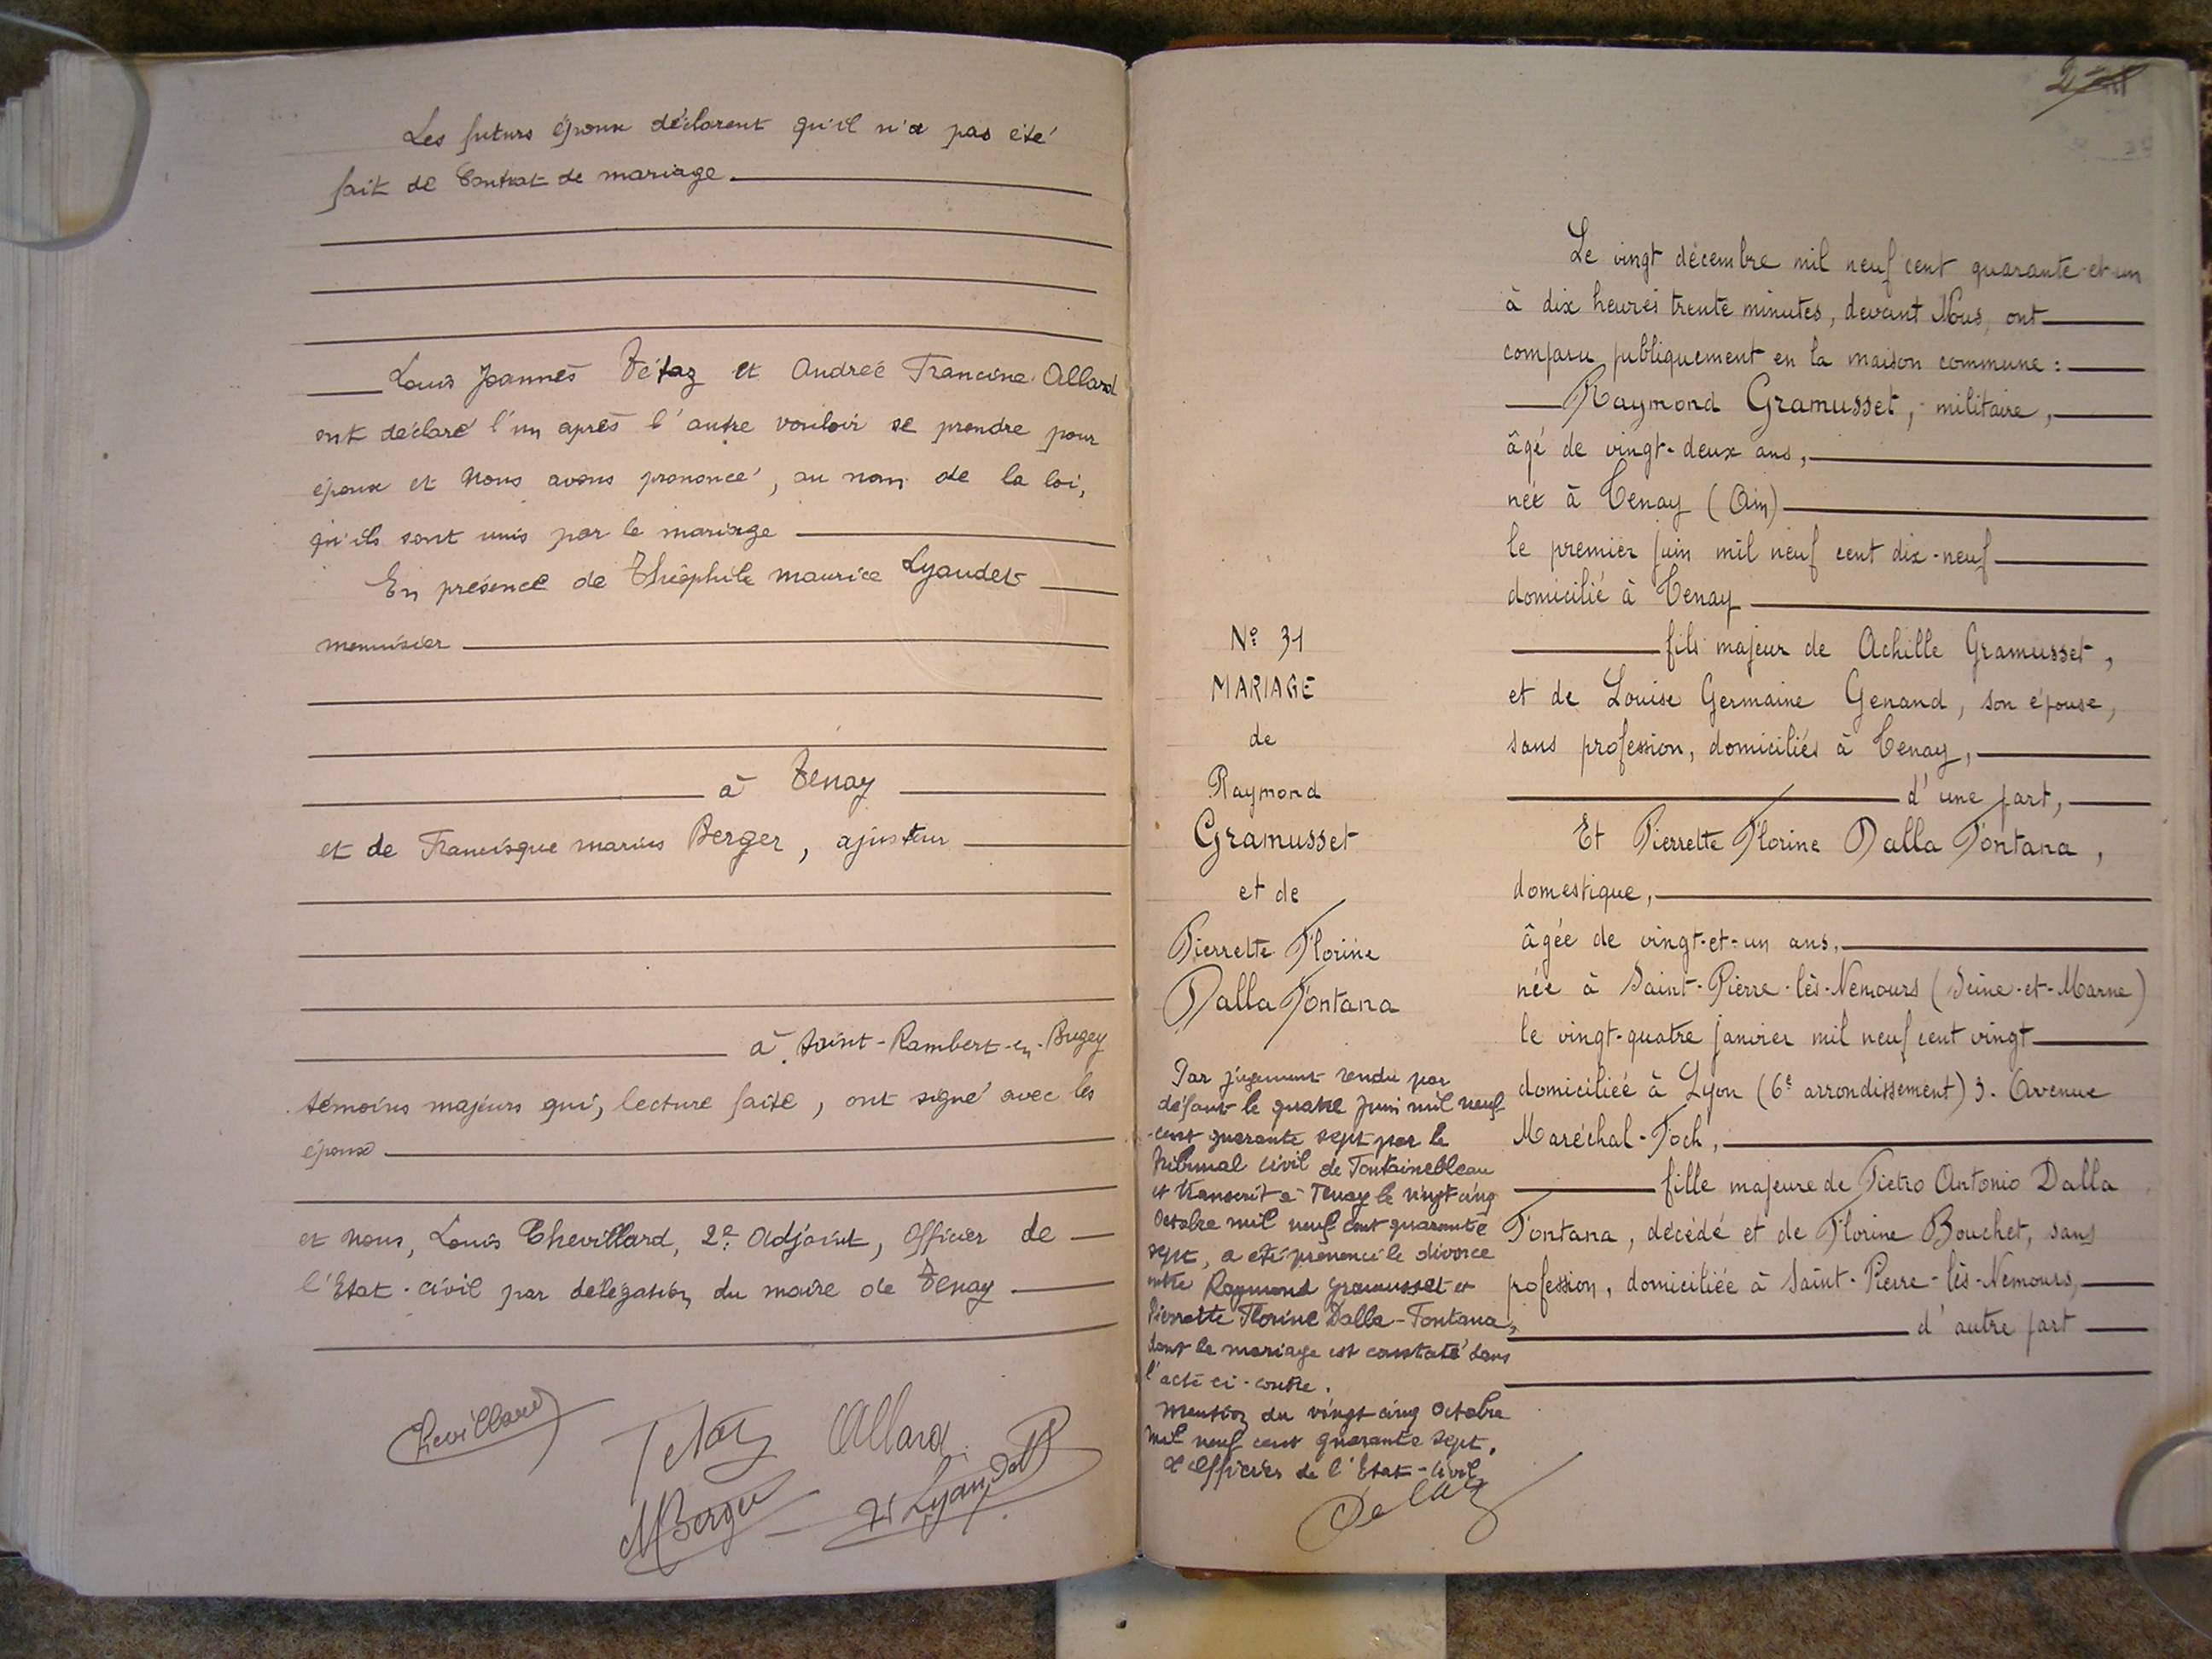 Les futurs époux déclarent qu'il n'a pas été
fait de Contrat de mariage
Louis Joannès Tétaz et Andrée Francine Allard
ont déclaré l'un après l'autre vouloir se prendre pour
époux et Nous avons prononcé, au nom de la loi,
qu'ils sont unis par le mariage
En présence de Théophile maurice Lyaudet
menuisier
à Tenay
et de Francisque marius Berger, ajusteur
à Saint-Rambert-en-Bugey
témoins majeurs qui, lecture faite, ont signé avec les
époux
et nous, Louis Chevillard, 2e Adjoint, Officier de
l'Etat-civil par délégation du maire de Tenay
Chevillard Tétaz Allard
MBerger Lyaudet
2
Le vingt décembre mil neuf cent quarante-et-un
à dix heures trente minutes, devant Nous, ont
comparu publiquement en la maison commune :
Raymond Gramusset, militaire,
âgé de vingt-deux ans,
né à Tenay (Ain)
le premier juin mil neuf cent dix-neuf
domicilié à Tenay
fils majeur de Achille Gramusset,
et de Louise Germaine Genand, son épouse,
sans profession, domiciliés à Tenay,
d'une part,
Et Pierrette Florine Dalla Fontana,
domestique,
âgée de vingt-et-un ans,
née à Saint-Pierre-lès-Nemours (Seine-et-Marne)
le vingt-quatre janvier mil neuf cent vingt
domiciliée à Lyon (6e arrondissement) 3. Avenue
Maréchal-Foch,
fille majeure de Pietro Antonio Dalla
Fontana, décédé et de Florine Bouchet, sans
profession, domiciliée à Saint-Pierre-lès-Nemours,
d'autre part
No 31
MARIAGE
de
Raymond
Gramusset
et de
Pierrette Florine
Dalla Fontana
Par jugement rendu par
défaut le quatre Juin mil neuf
cent quarante sept par le
Tribunal civil de Fontainebleau
et transcrit à Tenay le vingt cinq
Octobre mil neuf cent quarante
sept, a été prononcé le divorce
entre Raymond Gramusset et
Pierrette Florine Dalla-Fontana,
dont le mariage est constaté dans
l'acte ci-contre.
Mention du vingt cinq Octobre
mil neuf cent quarante sept.
L'Officier de l'Etat-Civil